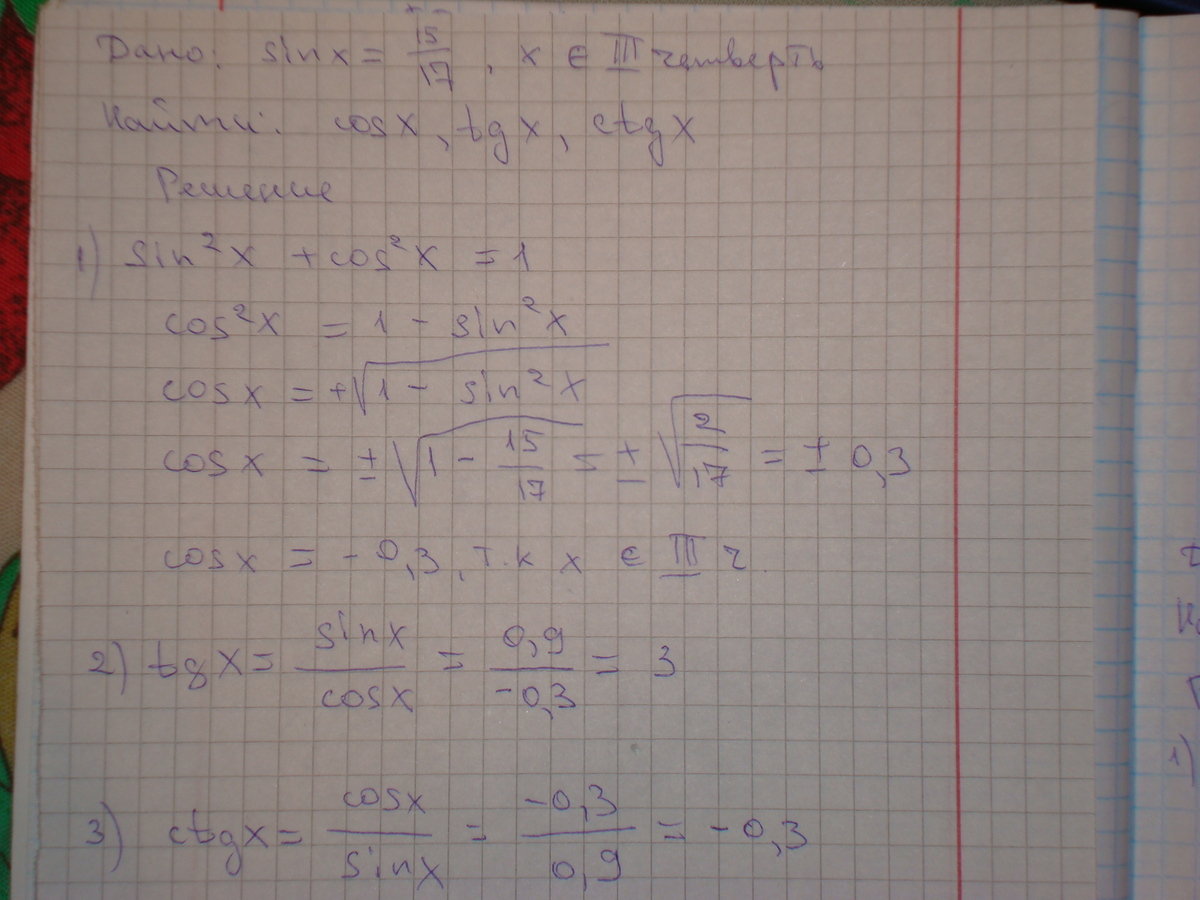 Дано: sin x = 15/17, x ∈ III четверть
Найти: cos x, tg x, ctg x
Решение
1) sin²x + cos²x = 1
cos²x = 1 - sin²x
cos x = +√(1 - sin²x)
cos x = ±√(1 - 15/17) = ±√(2/17) = ± 0,3
cos x = - 0,3, т.к x ∈ III ч.
2) tg x = sin x / cos x = 0,9 / -0,3 = 3
3) ctg x = cos x / sin x = -0,3 / 0,9 = - 0,3
1)